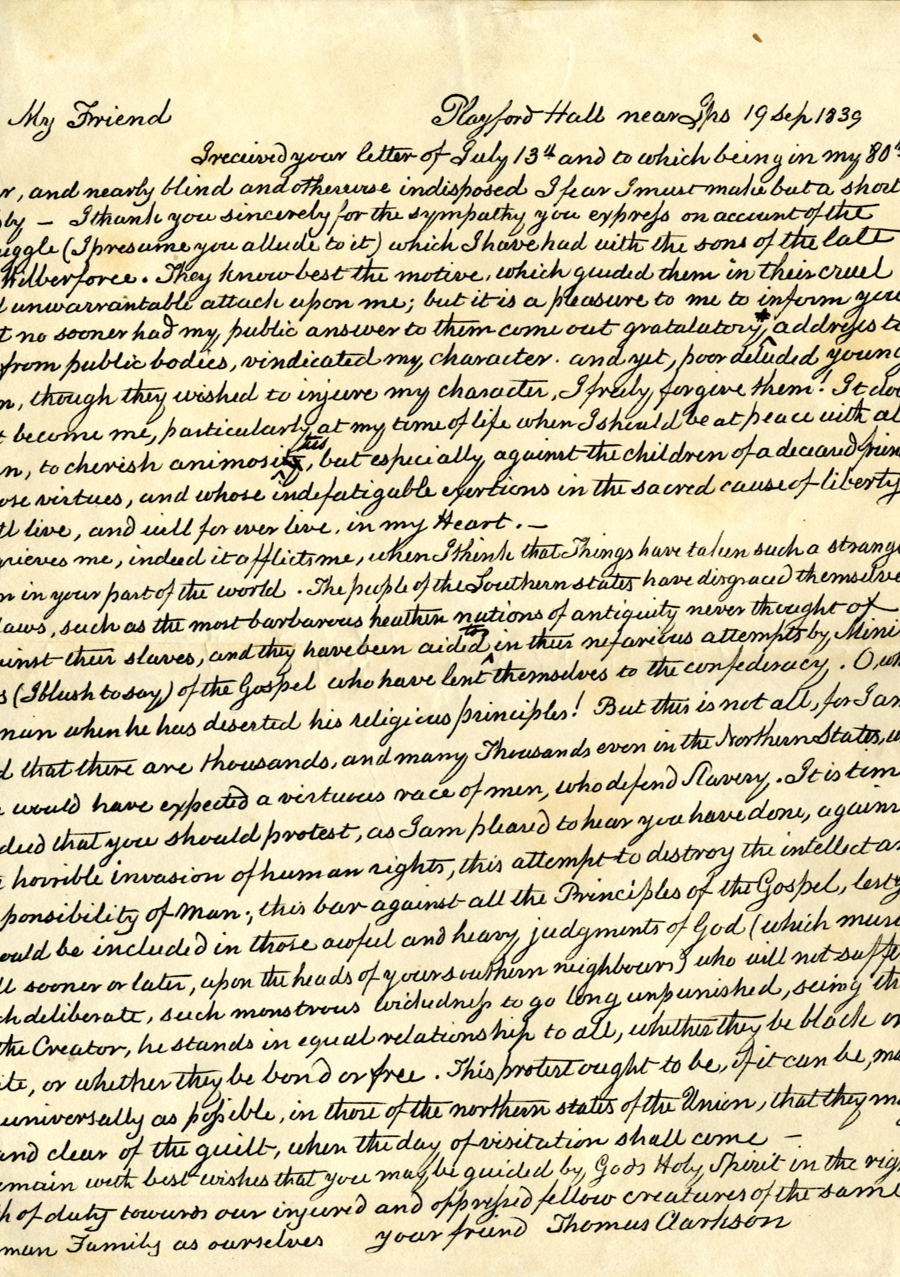 My Friend Playford Hall near Ips 19 Sep 1839
I recieved your letter of July 13th and to which being in my 80th
r, and nearly blind and otherwise indisposed I fear I must make but a short
ply — I thank you sincerely for the sympathy you express on account of the
uggle (I presume you allude to it) which I have had with the sons of the late
Wilberforce. They know best the motive, which guided them in their cruel
d unwarrantable attack upon me; but it is a pleasure to me to inform you
t no sooner had my public answer to them come out gratulatory, address to
from public bodies, vindicated my character. and yet, poor deluded young
n, though they wished to injure my character, I freely forgive them! It doe
t become me, particularly at my time of life when I should be at peace with al
n, to cherish animosities, but especially against the children of a deceased frien
ose virtues, and whose indefatigable exertions in the sacred cause of liberty
ll live, and will for ever live, in my Heart. —
grieves me, indeed it afflicts me, when I think that Things have taken such a strange
n in your part of the world. The people of the Southern states have disgraced themselve
laws, such as the most barbarous heathen nations of antiquity never thought of
ainst their slaves, and they have been aided in their nefarious attempts by Mini
s (I blush to say) of the Gospel who have lent themselves to the confederacy. O, wh
man when he has deserted his religious principles! But this is not all, for I am
d that there are thousands, and many Thousands even in the Northern States, w
e would have expected a virtuous race of men, who defend Slavery. It is tim
deed that you should protest, as I am pleased to hear you have done, agains
e horrible invasion of human rights, this attempt to destroy the intellect an
ponsibility of Man; this bar against all the Principles of the Gospel, lest y
ould be included in those awful and heavy judgments of God (which must
ll sooner or later, upon the heads of your southern neighbours) who will not suffe
ch deliberate, such monstrous wickedness to go long unpunished, seing tha
the Creator, he stands in equal relationship to all, whether they be black or
ite, or whether they be bond or free. This protest ought to be, if it can be, ma
universally as possible, in those of the northern states of the Union, that they ma
and clear of the guilt, when the day of visitation shall come —
emain with best wishes that you may be guided by Gods Holy Spirit in the righ
h of duty towards our injured and oppressed fellow creatures of the same
man Family as ourselves your friend Thomas Clarkson